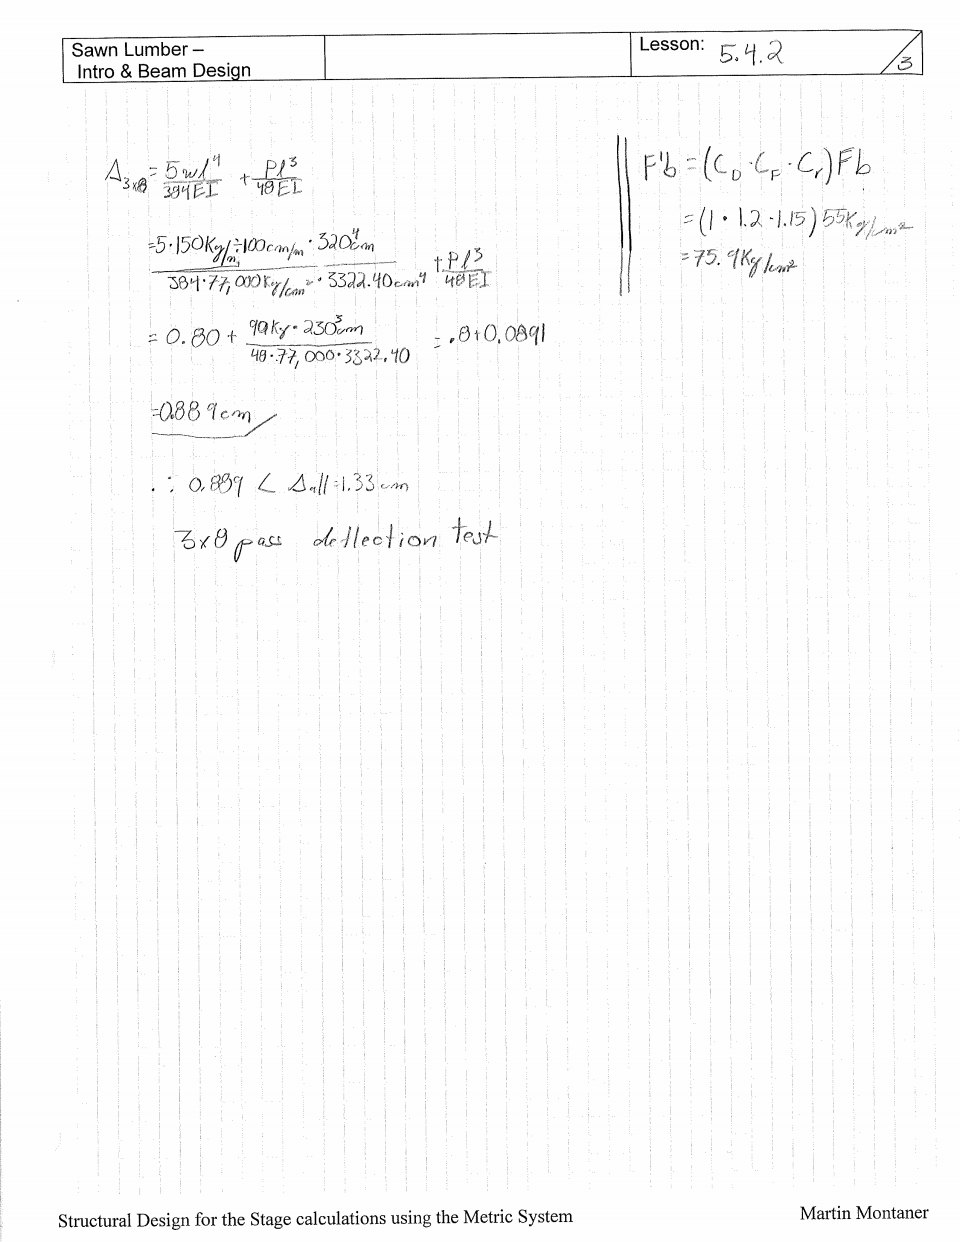 Sawn Lumber –
Intro & Beam Design
Lesson: 5.4.2
3
Δ3x8 = 5wl⁴/384EI + Pl³/48EI
= 5·150Kg/m÷100cm/m·320⁴cm / 384·77,000Kg/cm²·3322.40cm⁴ + Pl³/48EI
= 0.80 + 99Kg·230³cm / 48·77,000·3322.40 = .8+0.0891
=0.889cm
∴ 0.889 < Δall=1.33cm
3x8 pass deflection test
F'b = (CD·CF·Cr)Fb
= (1·1.2·1.15)55Kg/cm²
= 75.9Kg/cm²
Structural Design for the Stage calculations using the Metric System
Martin Montaner